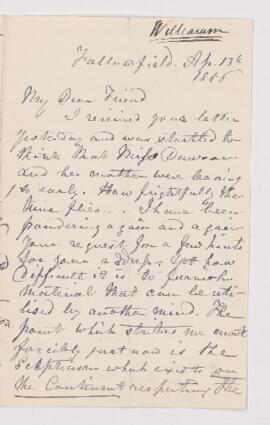 Williamson
Fallowfield. Ap. 13th
1886
My Dear Friend
I received your letter
yesterday and was startled to
think that Miss Dawson
and her mother were leaving
so early. How frightfully the
time flies... I have been
pondering again and again
your request for a few hints
for your address; yet how
difficult it is to furnish
material that can be uti-
lised by another mind. The
point which strikes me most
forcibly just now is the
scepticism which exists on
the Continent respecting the